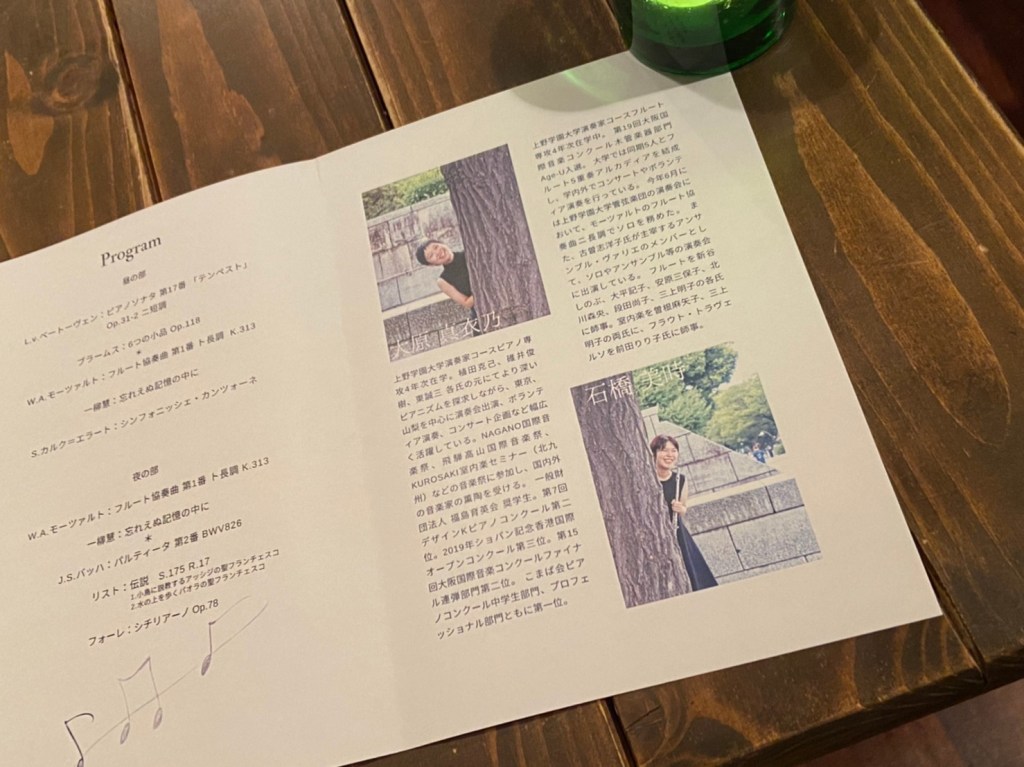 Program
昼の部
L.v.ベートーヴェン：ピアノソナタ 第17番 「テンペスト」
Op.31-2 ニ短調
ブラームス：6つの小品 Op.118
*
W.A.モーツァルト：フルート協奏曲 第1番 ト長調 K.313
一柳慧：忘れえぬ記憶の中に
S.カルク＝エラート：シンフォニッシェ・カンツォーネ
夜の部
W.A.モーツァルト：フルート協奏曲 第1番 ト長調 K.313
一柳慧：忘れえぬ記憶の中に
*
J.S.バッハ：パルティータ 第2番 BWV826
リスト：伝説 S.175 R.17
1.小鳥に説教するアッシジの聖フランチェスコ
2.水の上を歩くパオラの聖フランチェスコ
フォーレ：シチリアーノ Op.78
大原 真衣乃
上野学園大学演奏家コースピアノ専
攻4年次在学。植田克己、樋井俊
樹、東誠三 各氏の元にてより深い
ピアニズムを探求しながら、東京、
山梨を中心に演奏会出演、ボランテ
ィア演奏、コンサート企画など幅広
く活躍している。NAGANO国際音
楽祭、飛騨高山国際音楽祭、
KUROSAKI室内楽セミナー（北九
州）などの音楽祭に参加し、国内外
の音楽家の薫陶を受ける。一般財
団法人 福島育英会 奨学生。第7回
デザインKピアノコンクール第二
位。2019年ショパン記念香港国際
オープンコンクール第三位。第15
回大阪国際音楽コンクールファイナ
ル連弾部門第二位。 こまば会ピア
ノコンクール中学生部門、プロフェ
ッショナル部門ともに第一位。
上野学園大学演奏家コースフルート
専攻4年次在学中。 第19回大阪国
際音楽コンクール木管楽器部門
Age-U入選。大学では同期5人とフ
ルート5重奏アルカディアを結成
し、学内外でコンサートやボランテ
ィア演奏を行っている。 今年6月に
は上野学園大学管弦楽団の演奏会に
おいて、モーツァルトのフルート協
奏曲ニ長調でソロを務めた。 ま
た、古曽志洋子氏が主宰するアンサ
ンブル・ヴァリエのメンバーとし
て、ソロやアンサンブル等の演奏会
に出演している。 フルートを新谷
しのぶ、大平記子、安原三保子、北
川森央、段田尚子、三上明子の各氏
に師事。室内楽を曽根麻矢子、三上
明子の両氏に、フラウト・トラヴェ
ルソを前田りり子氏に師事。
石橋 美時